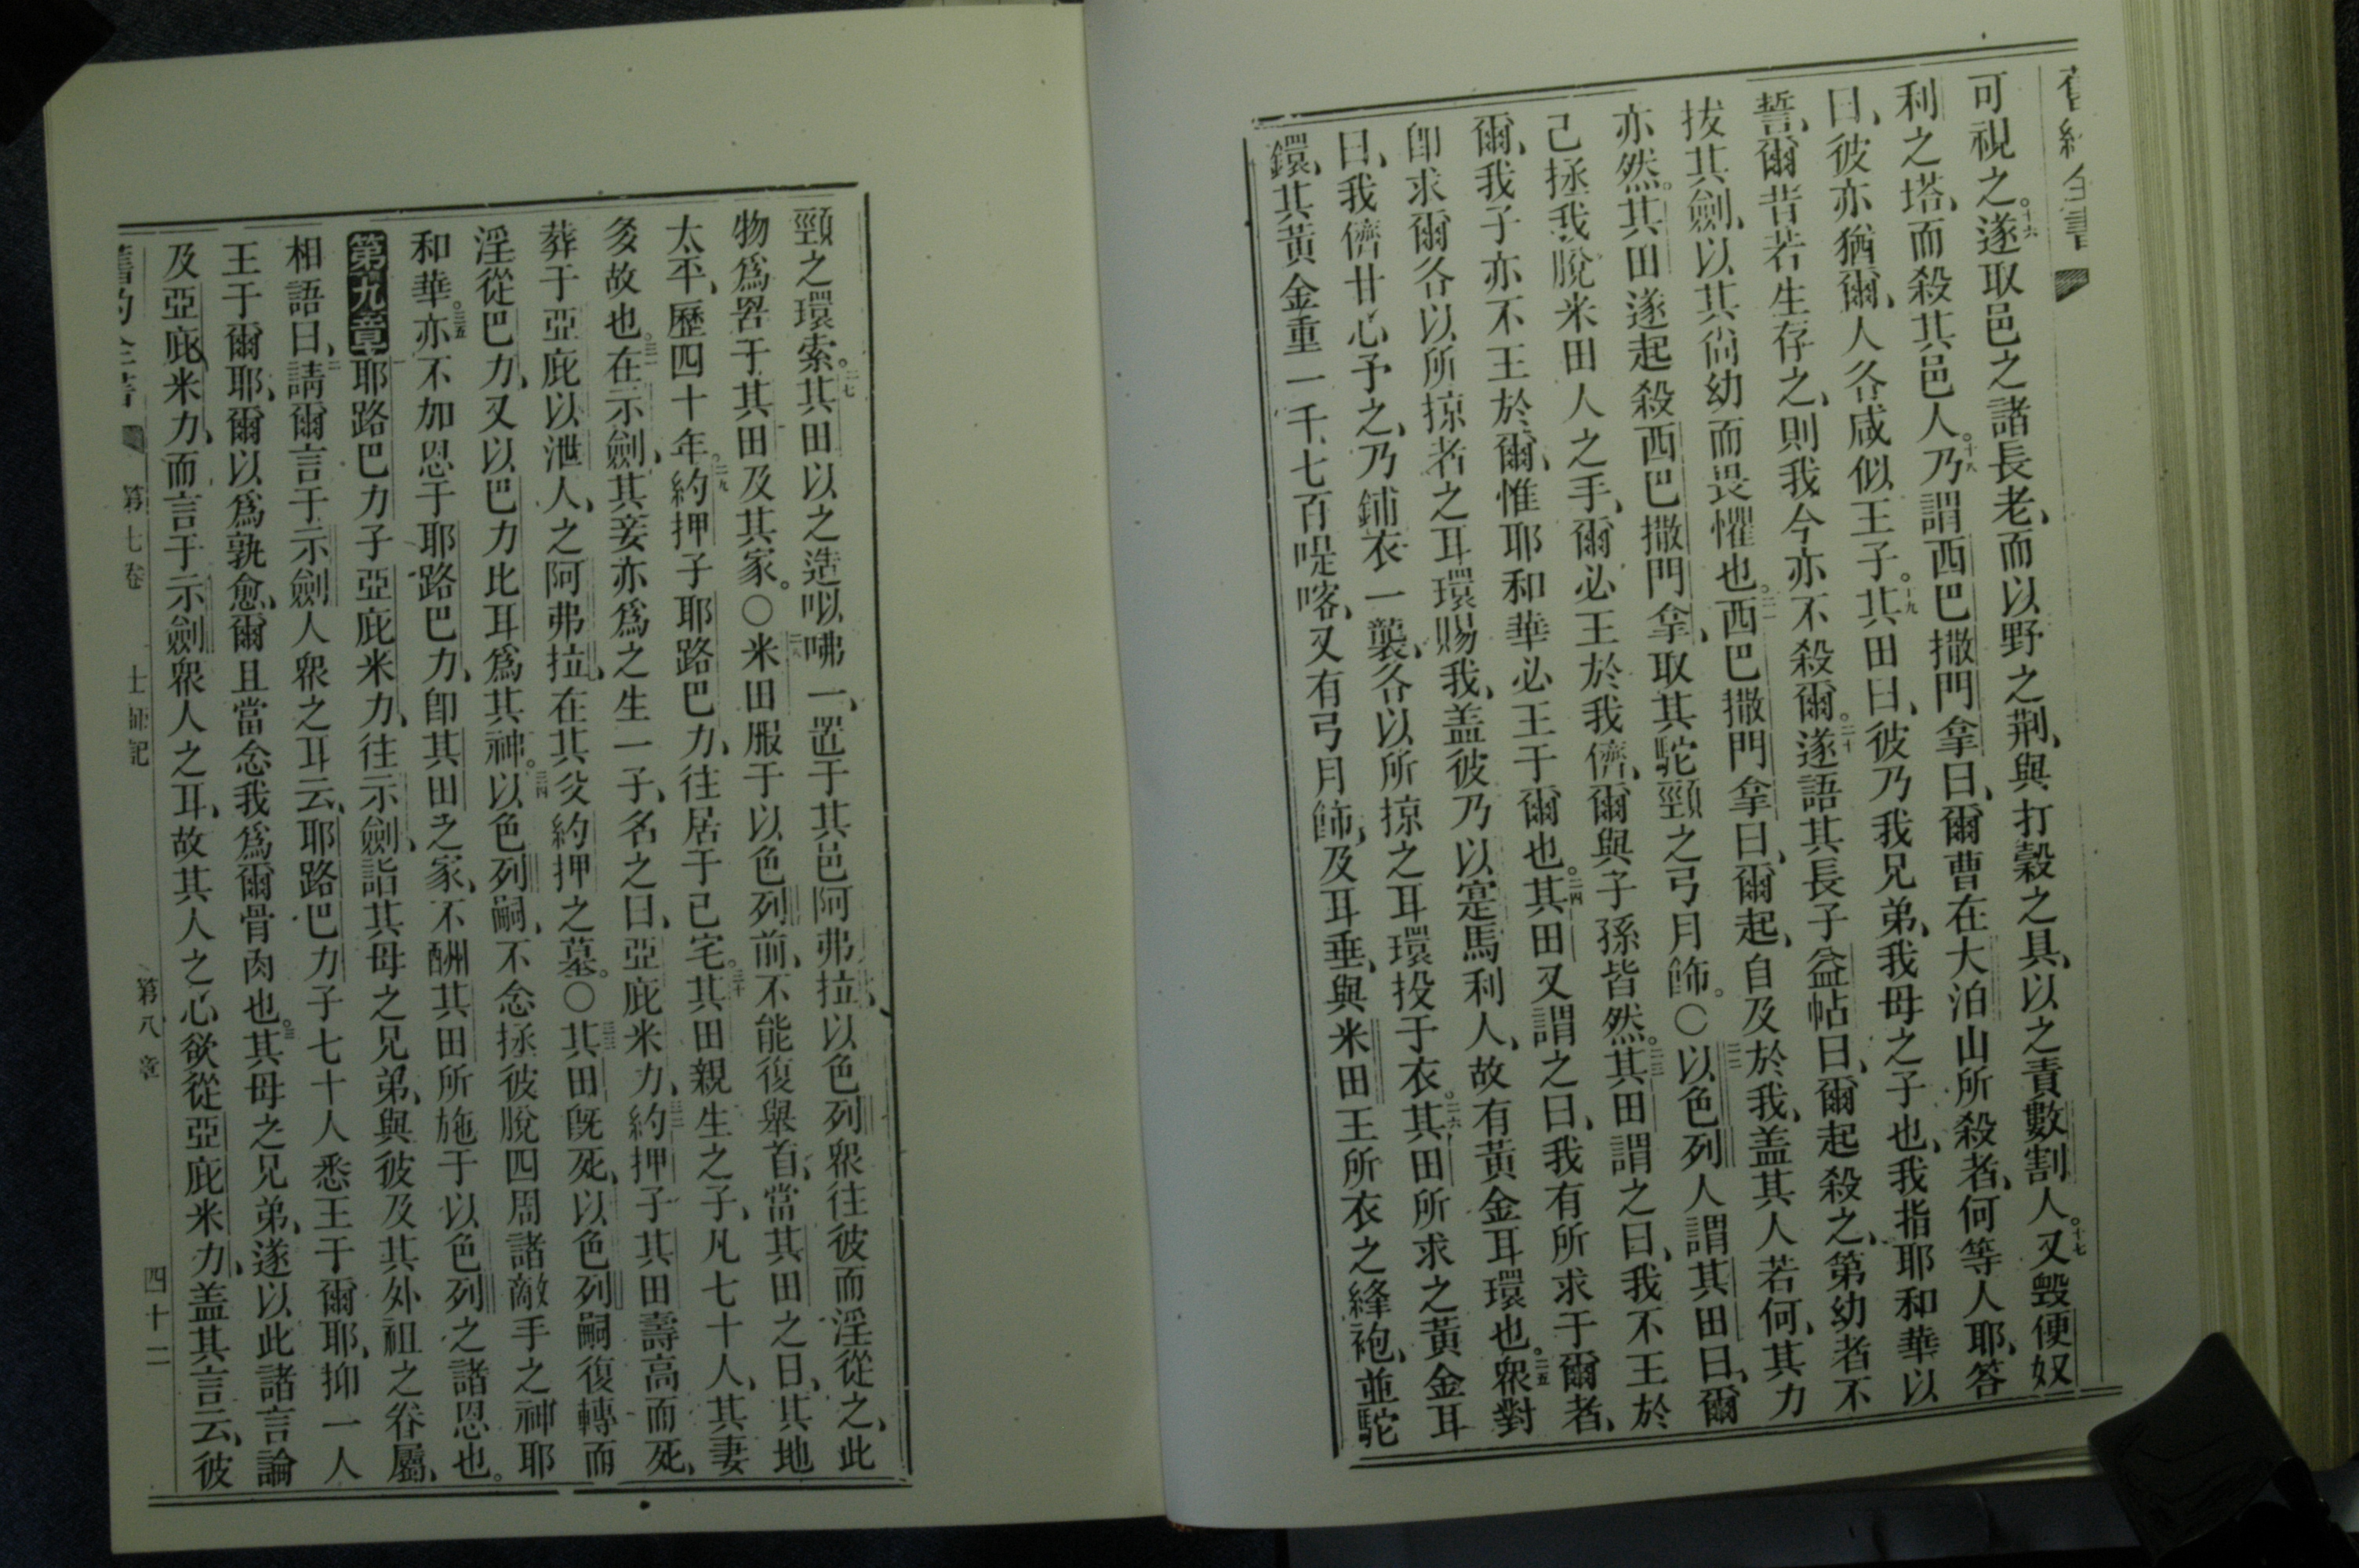 可視之。十六遂取邑之諸長老、而以野之荆、與打穀之具、以之責數割人。十七又毀便奴
利之塔、而殺其邑人。十八乃謂西巴撒門拿曰、爾曹在大泊山所殺者、何等人耶、答
曰、彼亦猶爾、人各咸似王子。十九其田曰、彼乃我兄弟、我母之子也、我指耶和華以
誓、爾昔若生存之、則我今亦不殺爾。二十遂語其長子益帖曰、爾起殺之、第幼者不
拔其劍、以其尙幼而畏懼也。二一西巴撒門拿曰、爾起、自及於我、盖其人若何、其力
亦然。其田遂起殺西巴撒門拿、取其駝頸之弓月飾。〇二二以色列人謂其田曰、爾
己拯我脫米田人之手、爾必王於我儕、爾與子孫皆然。二三其田謂之曰、我不王於
爾、我子亦不王於爾、惟耶和華必王于爾也。二四其田又謂之曰、我有所求于爾者、
卽求爾各以所掠者之耳環賜我、盖彼乃以寔馬利人、故有黃金耳環也。二五衆對
曰、我儕甘心予之、乃鋪衣一襲、各以所掠之耳環投于衣。二六其田所求之黃金耳
鐶、其黃金重一千七百㖷喀、又有弓月飾、及耳垂、與米田王所衣之縫袍、並駝
頸之環索。二七其田以之造㕽咈一、置于其邑阿弗拉、以色列衆往彼而淫從之、此
物爲罟于其田及其家。〇二八米田服于以色列前、不能復舉首、當其田之日、其地
太平、歷四十年。二九約押子耶路巴力、往居于己宅。三十其田親生之子、凡七十人、其妻
多故也。三一在示劍、其妾亦爲之生一子、名之曰、亞庇米力、三二約押子其田壽高而死、
葬于亞庇以泄人、之阿弗拉、在其父約押之墓。〇三三其田旣死、以色列嗣復轉而
淫從巴力、又以巴力比耳爲其神。三四以色列嗣、不念拯彼脫四周諸敵手之神耶
和華。三五亦不加恩于耶路巴力、卽其田之家、不酬其田所施于以色列之諸恩也。
第九章 一耶路巴力子亞庇米力、往示劍、詣其母之兄弟、與彼及其外祖之眷屬、
相語曰、二請爾言于示劍人衆之耳云、耶路巴力子七十人悉王于爾耶、抑一人
王于爾耶、爾以爲孰愈、爾且當念我爲爾骨肉也。三其母之兄弟、遂以此諸言論
及亞庇米力、而言于示劍衆人之耳、故其人之心欲從亞庇米力、盖其言云、彼
第七卷 士師記 第八章 四十二